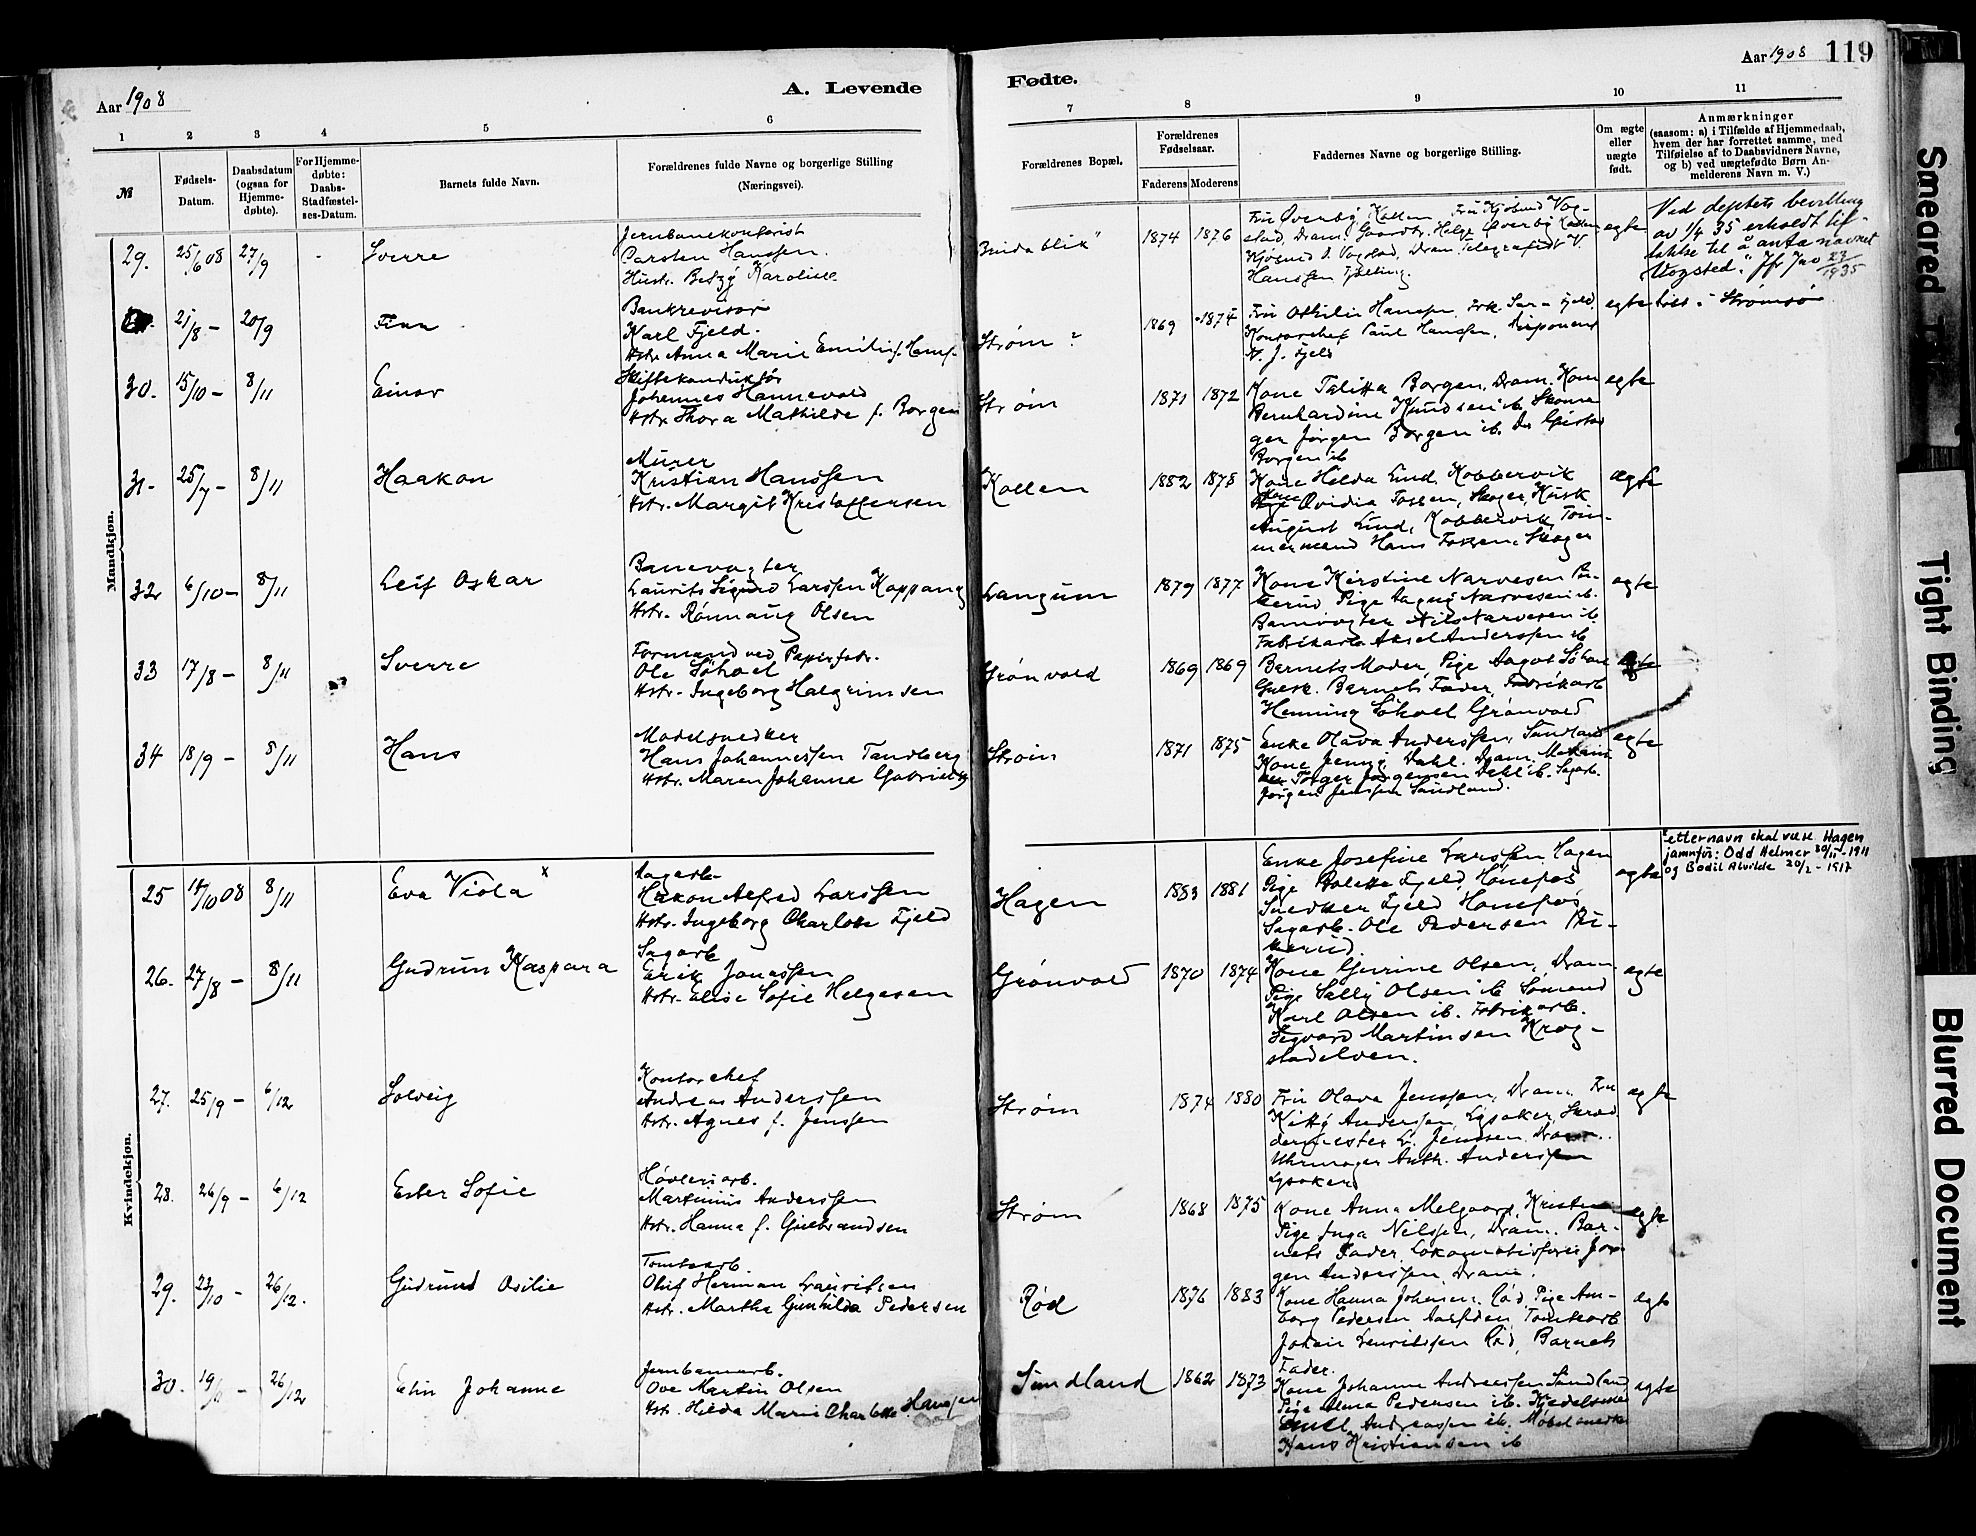 Aar 1908
A. Levende
Fødte.
Aar 1908 119
1 2 3 4 5 6 7 8 9 10 11
№
Fødsels-
Datum.
Daabsdatum
(ogsaa for
Hjemme-
døbte).
For Hjemme-
døbte:
Daabs-
Stadfæstel-
ses-Datum.
Barnets fulde Navn.
Forældrenes fulde Navne og borgerlige Stilling
(Næringsvei).
Forældrenes Bopæl.
Forældrenes
Fødselsaar.
Faderens Moderens
Faddernes Navne og borgerlige Stilling.
Om ægte
eller
uægte
født.
Anmærkninger
(saasom: a) i Tilfælde af Hjemmedaab,
hvem der har forrettet samme, med
Tilføielse af to Daabsvidners Navne,
og b) ved uægtefødte Børn An-
melderens Navn m. V.)
Mandkjøn.
29. 25/6 08 27/9 Sverre
Jernbanekontorist
Carsten Hanssen.
Hustr. Betzy Karoline
1874 1876
Fru Øverby Kollen, Fru
Hanssen
egte
Ved deptets bevilling
av 1/4 35 erholdt til-
latelse til å anta navnet
"Vogsted." Jfr Jno 23/1935
21/8 - 20/9 Finn
Bankrevisor
Karl Fjeld.
Hstr. Anna Marie Emilie f. Hans-
Strøm
1869 1874
Fru Othilie Hansen, Frk.
Kontorchef Paul Hanssen, Disponent
Fjeld
egte døbt i Strømsø
30. 15/10 - 8/11 Einar
Skiftekonduktør
Johannes Hannevold
Hstr. Thora Mathilde f. Borgen
Strøm
1871 1872
Kone Talitta Borgen, Dram. Kone
Bernhardine Knudsen ib.
Jørgen Borgen ib.
Borgen ib
egte
31. 25/7 - 8/11 Haakon
Murer
Kristian Hanssen
Hstr. Margit Kristoffersen
Kollen
1882 1878
Kone Hilda Lund, Kobbervik
Ovidia Fossen, Skoger,
August Lund, Kobbervik, Töm-
mermand Hans Fossen, Skoger
ægte
32 6/10 - 8/11 Leif Oskar
Banevogter
Laurits Sigurd Larssen Kappang
Hstr. Rønnaug Olsen
Langum
1879 1877
Kone Kirstine Narvesen
Pige Dagny Narvesen ib.
Banevogter Nils Narvesen ib
Fabrikarb. Aksel Anderssen ib
egte
33 17/8 - 8/11 Sverre
Formand ved Papirfabr.
Ole Söhoel
Hstr. Ingeborg Halgrimsen
Grönvold
1869 1869
Barnets Moder, Pige Aagot
Barnets Fader, Fabrikarb
Henning Söhoel Grönvold
egte
34 18/9 - 8/11 Hans
Modelsnedker
Hans Johannessen Tandberg
Hstr. Maren Johanne
Strøm
1871 1875
Enke Olava Anderssen, Sundland
Kone Jenny Dahl, Dram.
Jørgensen Dahl ib. Sagarb.
Jørgen Jenssen Sundland.
egte
Kvindekjøn.
25 14/10 08 8/11 Eva Viola x
Sagarb.
Hakon Alfred Larssen
Hstr. Ingeborg Charlotte Fjeld
Hagen
1883 1881
Enke Josefine Larssen Hagen
Pige Fjeld, Hönefos
Snedker Fjeld Hönefos,
Sagarb. Ole Pedersen
egte
x etternavn skal være Hagen
jamnför: Odd Helmer 30/11-1911
og Bodil Alvilde 20/2-1917
26. 27/8 - 8/11 Gudrun Kaspara
Sagarb
Erik Jonassen
Hstr. Elise Sofie Helgesen
Grönvold
1870 1874
Kone Gurine Olsen, Dram
Pige Sally Olsen ib Sömand
Karl Olsen ib. Fabrikarb.
Sigvard Martinsen Krog-
stadelven.
egte
27. 25/9 - 6/12 Solveig
Kontorchef
Andreas Anderssen
Hstr. Agnes f. Jenssen
Strøm
1874 1880
Fru Olava Jenssen, Dram, Fru
Kitty Anderssen, Lysaker,
Jenssen, Dram.
Uhrmager Anth. Anderssen
Lysaker
egte
28. 26/9 - 6/12 Ester Sofie
Høvleriarb.
Martinius Anderssen
Hstr. Hanna f. Gulbrandsen
Strøm
1868 1875
Kone Anna Melgaard,
Pige Inga Nilssen, Dram. Bar-
nets Fader, Lokomotivfører Jör-
gen Anderssen, Dram.
egte
29. 23/10 - 26/12. Gudrund Osilie
Tomtearb.
Oluf Herman Lauritsen
Hstr. Marthe Gunhilda Pedersen
Rød
1876 1883
Kone Hanna Johansen, Rød, Pige Am-
borg Pedersen Tomtearb
Johan Lauritssen Rød, Barnets
Fader.
egte
30. 19/11 - 26/12 Elin Johanne
Jernbanearb.
Ove Martin Olsen
Hstr. Hilda Marie Charlotte Hanssen
Sundland
1862 1873
Kone Johanne Andreassen Sundland
Pige Anna Pedersen ib.
Emil Andreassen ib. Møbelsnedker
Hans Kristiansen ib
egte
Smeared
Tight Binding
Blurred Document